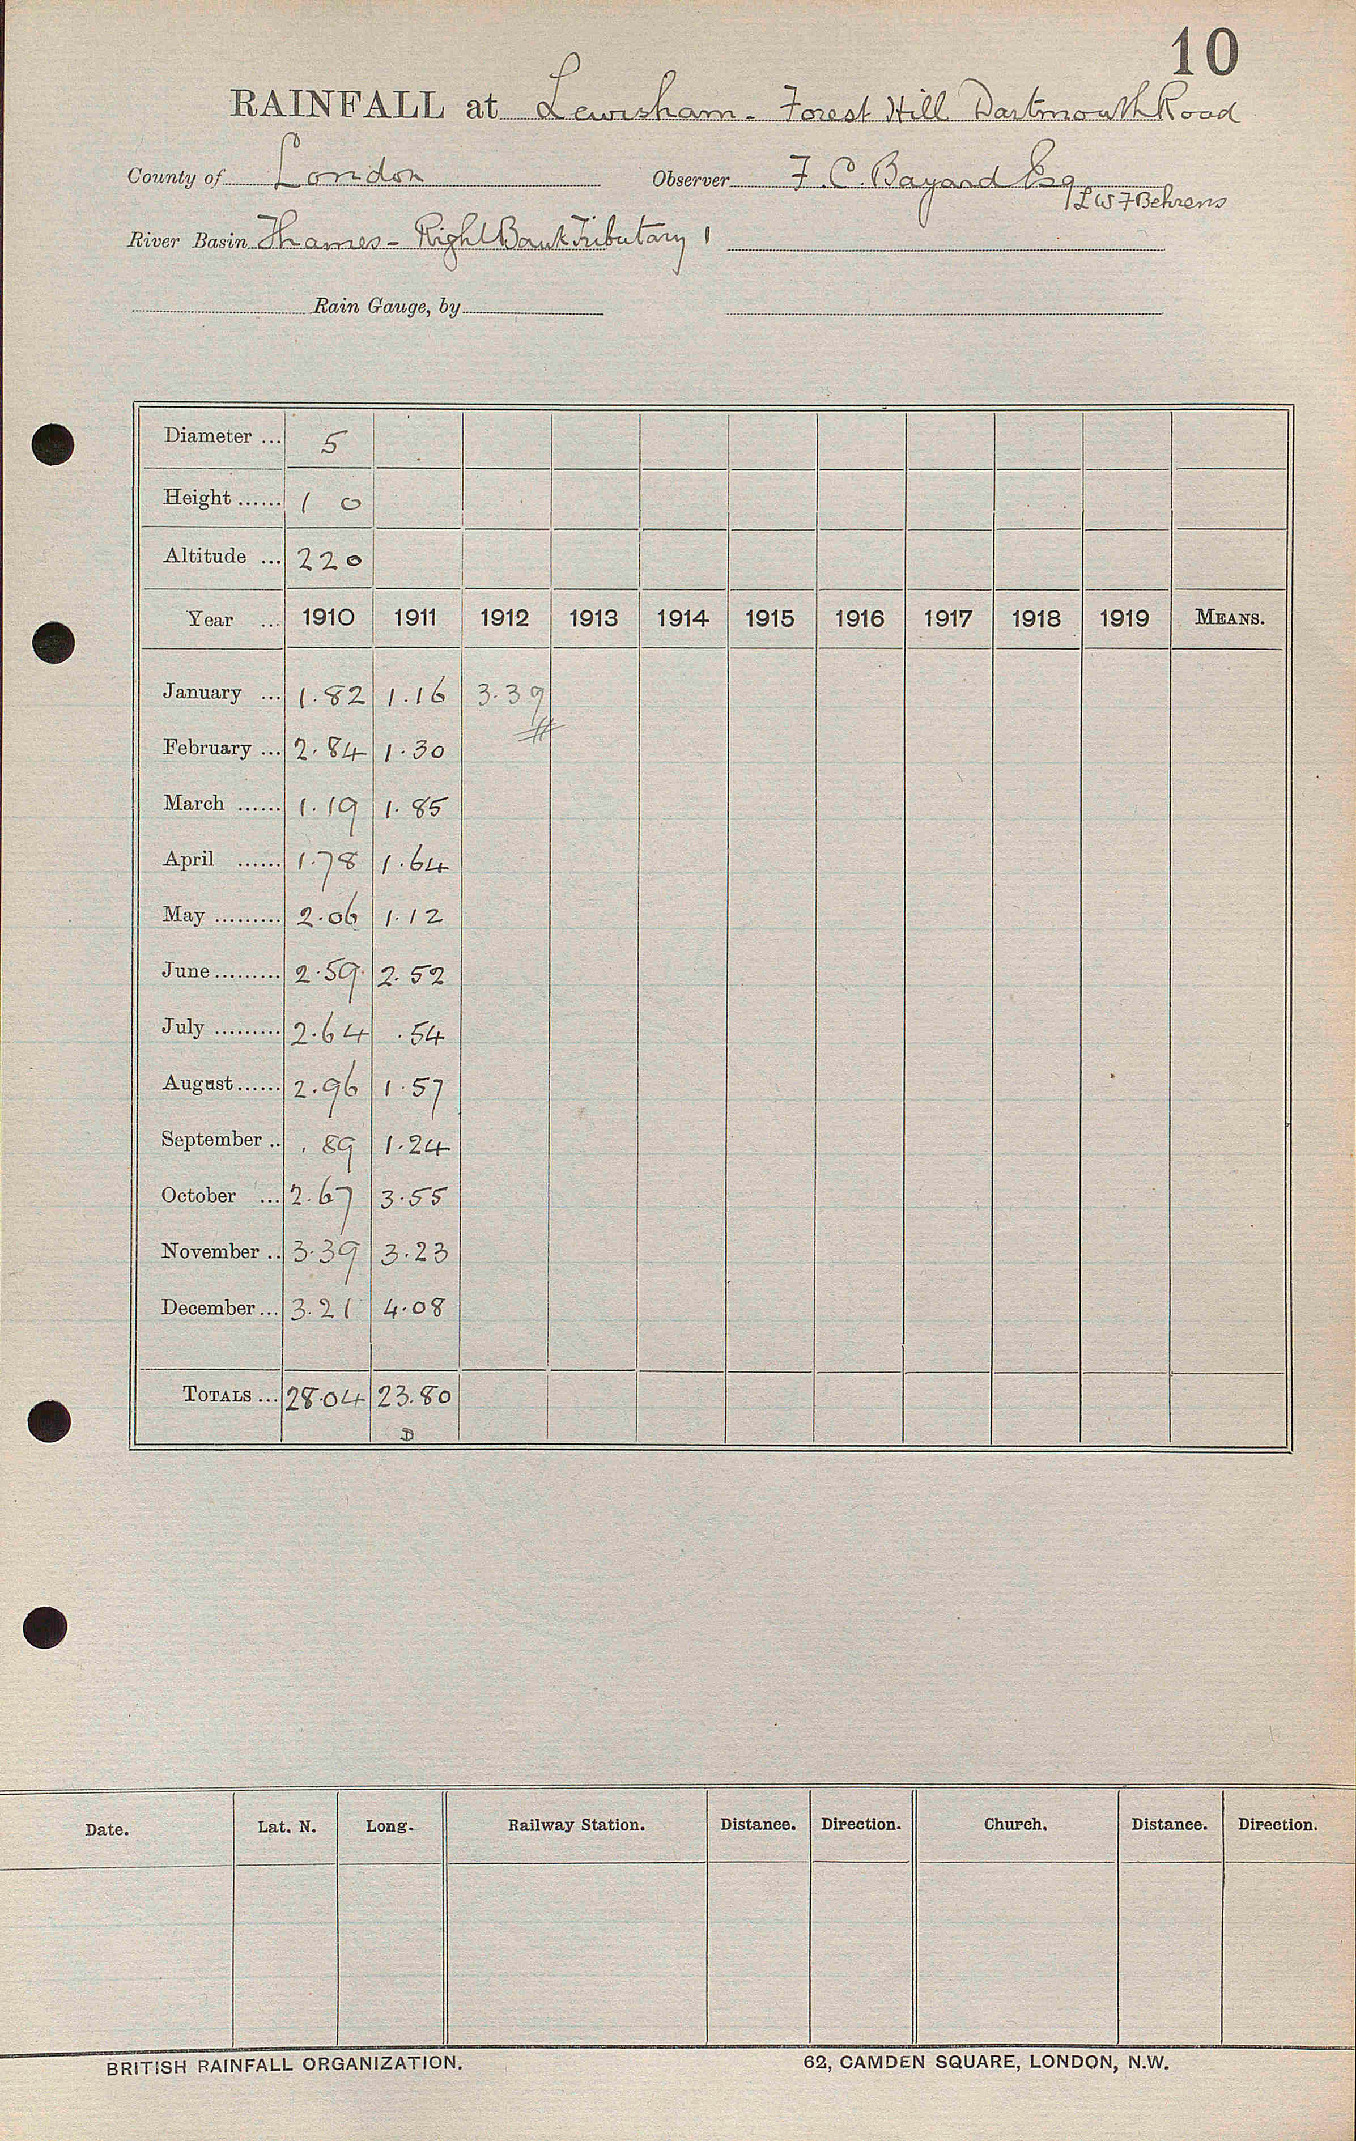 10
RAINFALL at Lewisham - Forest Hill Dartmouth Road
County of London Observer F. C. Bayard Esq
/L W F Behrens
River Basin Thames - Right Bank Tributary 1
Rain Gauge, by
Diameter ... 5
Height ...... 1 0
Altitude ... 220
Year ... 1910 1911 1912 1913 1914 1915 1916 1917 1918 1919 MEANS.
January ... 1.82 1.16 3.39
February ... 2.84 1.30
March ...... 1.19 1.85
April ...... 1.78 1.64
May ......... 2.06 1.12
June ......... 2.59 2.52
July ......... 2.64 .54
August ...... 2.96 1.57
September .. .89 1.24
October ... 2.67 3.55
November .. 3.39 3.23
December ... 3.21 4.08
TOTALS ... 28.04 23.80
D
Date. Lat. N. Long. Railway Station. Distance. Direction. Church. Distance. Direction.
BRITISH RAINFALL ORGANIZATION. 62, CAMDEN SQUARE, LONDON, N.W.